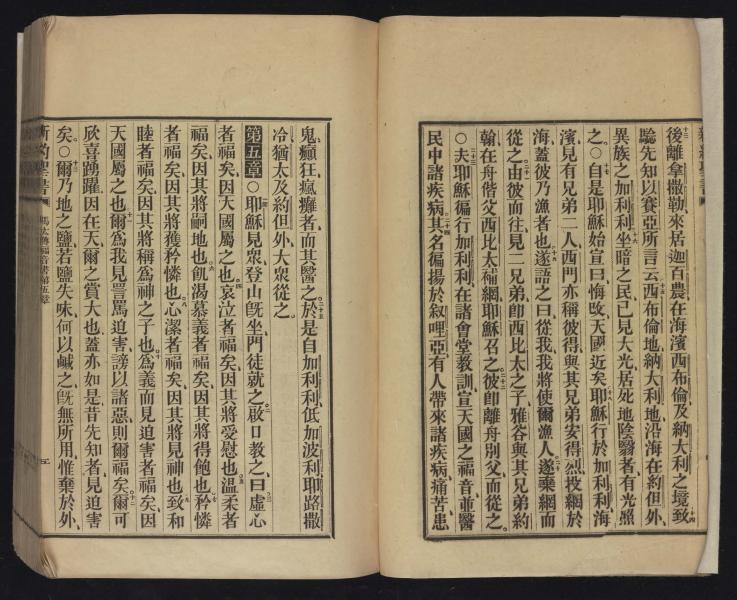 新約聖書
十三後離拿撒勒來居迦百農在海濱西布倫及納大利之境十四致
騐先知以賽亞所言云十五西布倫地納大利地沿海在約但外
異族之加利利十六坐暗之民已見大光居死地陰翳者有光照
之○十七自是耶穌始宣曰悔改天國近矣十八耶穌行於加利利海
濱見有兄弟二人西門亦稱彼得與其兄弟安得烈投網於
海蓋彼乃漁者也十九遂語之曰從我我將使爾漁人二十遂棄網而
從之二十一由彼而往見二兄弟卽西比太之子雅各與其兄弟約
翰在舟偕父西比太補網耶穌召之二十二彼卽離舟別父而從之
○二十三夫耶穌徧行加利利在諸會堂教訓宣天國之福音並醫
民中諸疾病二十四其名徧揚於叙哩亞有人帶來諸疾病痛苦患
鬼癲狂瘋癱者而其醫之二十五於是自加利利低加波利耶路撒
冷猶太及約但外大眾從之
第五章○耶穌見眾登山旣坐門徒就之二啟口教之曰三虛心
者福矣因天國屬之也四哀泣者福矣因其將受慰也五温柔者
福矣因其將嗣地也六飢渴慕義者福矣因其將得飽也七矜憐
者福矣因其將獲矜憐也八心潔者福矣因其將見神也九致和
睦者福矣因其將稱爲神之子也十爲義而見迫害者福矣因
天國屬之也十一爾爲我見詈罵迫害謗以諸惡則爾福矣十二爾可
欣喜踴躍因在天爾之賞大也蓋亦如是昔先知者見迫害
矣○十三爾乃地之鹽若鹽失味何以鹹之旣無所用惟棄於外
新約聖書 馬太傳福音書第五章